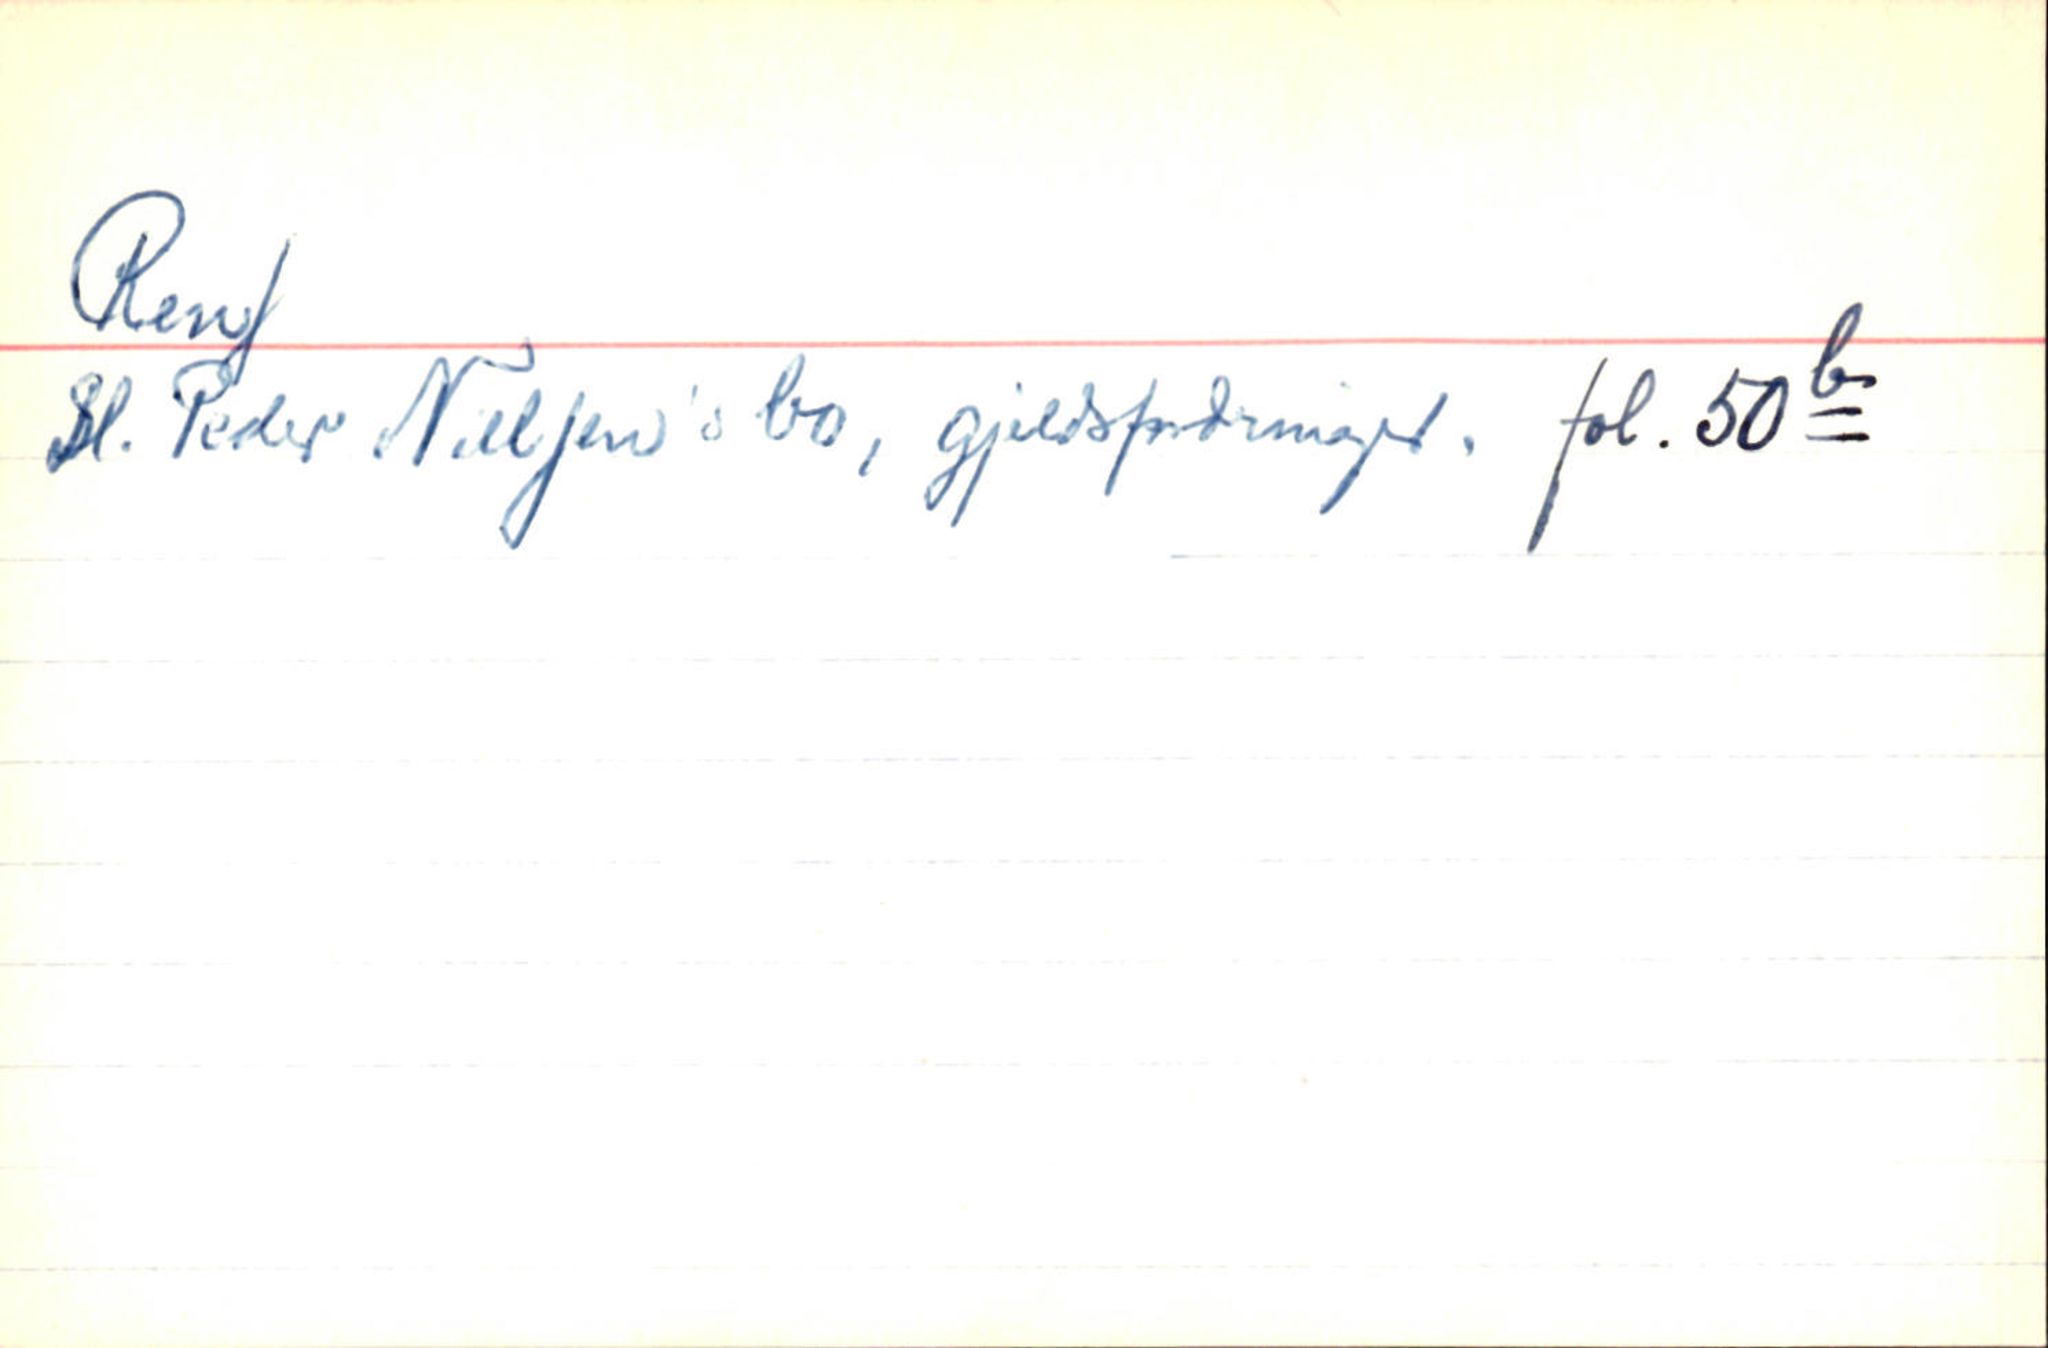 Renf
Sl. Peder Nielssen's bo, gjeldsfordringer. fol. 50 b